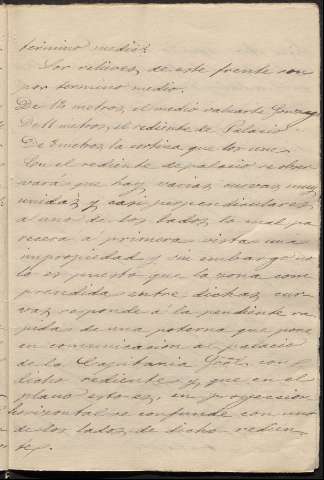 término medio:
Los relieves, de este frente son
por termino medio.
De 12 metros, el medio valuarte Gonzaga
De 11 metros, el rediente de Palacio
De 8 metros, la cortina que los une
En el rediente de palacio se obser-
vará que hay varias, curvas, muy
unidas, y casi perpendiculares
a uno de los lados, lo cual pa-
recerá á primera vista una
impropiedad y sin embargo no
lo es puesto que la zona com-
prendida entre dichas, cur-
vas, responde á la pendiente ra-
pida de una poterna que pone
en comunicación al palacio
de la Capitanía Gral. con
dicho rediente y, que en el
plano esto es, en proyeccion
horizontal se confunde con uno
de los lados, de dicho redien-
te.